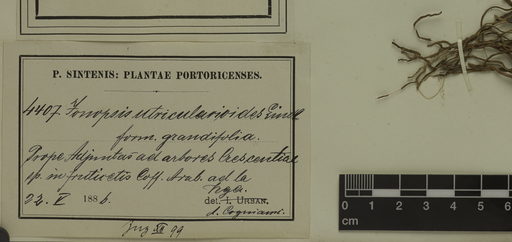 P. SINTENIS: PLANTAE PORTORICENSES.
4407. Ionopsis utricularioides Lindl
form. grandifolia.
Prope Adjuntas ad arbores Crescentiae
sp. in fruticetis Coff. Arab. ad la
22. V 1886.
det. I. URBAN.
A. Cogniaux.
XI 99
0 1 2 3 4 5 6
cm